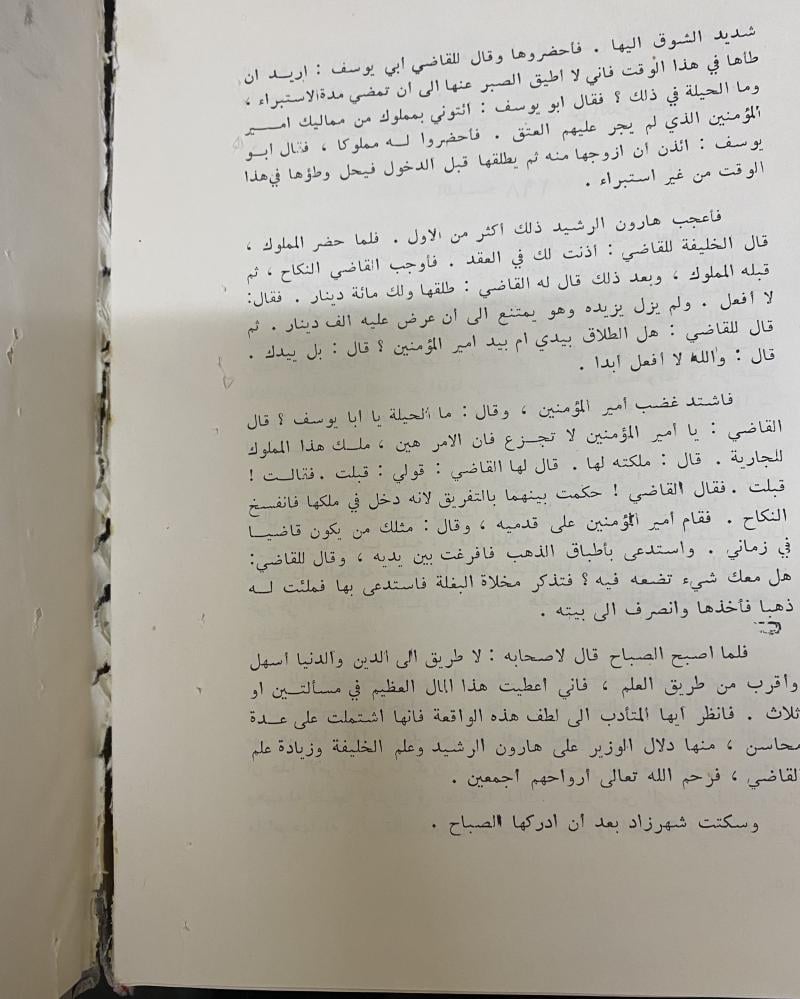 شديد الشوق اليها . فأحضروها وقال للقاضي ابي يوسف : اريــد ان
طأها في هذا الوقت فاني لا اطيق الصبر عنها الى ان تمضي مدة الاستبراء ،
وما الحيلة في ذلك ؟ فقال ابو يوسف : ائتوني بمملوك من مماليك امــير
المؤمنين الذي لم يجر عليهم العتق . فأحضروا لــه مملوكا ، فقال ابــو
يوسف : ائذن ان ازوجها منه ثم يطلقها قبل الدخول فيحل وطؤها في هذا
الوقت من غير استبراء .
فأعجب هارون الرشيد ذلك أكثر من الاول . فلما حضر المملوك ،
قال الخليفة للقاضي : أذنت لك في العقد . فأوجب القاضي النكاح ، ثم
قبله المملوك ، وبعد ذلك قال له القاضي : طلقها ولك مائة دينار . فقال:
لا أفعل . ولم يزل يزيده وهو يمتنع الى ان عرض عليه الف دينار . ثم
قال للقاضي : هل الطلاق بيدي ام بيد امير المؤمنين ؟ قال : بل بيدك .
قال : والله لا أفعل ابدا .
فاشتد غضب أمير المؤمنين ، وقال : ما الحيلة يا ابا يوسف ؟ قال
القاضي : يا أمير المؤمنين لا تجــزع فان الامر هين ، ملــك هذا المملوك
للجارية . قال : ملكته لها . قال لها القاضي : قولي : قبلت . فقالــت !
قبلت . فقال القاضي ! حكمت بينهما بالتفريق لانه دخل في ملكها فانفسخ
النكاح . فقام أمير المؤمنين على قدميه ، وقال : مثلك من يكون قاضيــا
في زماني . واستدعى بأطباق الذهب فافرغت بين يديه ، وقال للقاضي:
هل معك شيء تضعه فيه ؟ فتذكر مخلاة البغلة فاستدعى بها فملئت لــه
ذهبا فأخذها وانصرف الى بيته .
فلما اصبح الصباح قال لاصحابه : لا طريق الى الدين والدنيا أسهل
وأقرب من طريق العلم ، فاني اعطيت هذا المال العظيم في مسألتــين او
ثلاث . فانظر ايها المتأدب الى لطف هذه الواقعة فانها اشتملت على عــدة
محاسن ، منها دلال الوزير على هارون الرشيد وعلم الخليفة وزيادة علم
القاضي ، فرحم الله تعالى أرواحهم اجمعين .
وسكتت شهرزاد بعد ان ادركها الصباح .